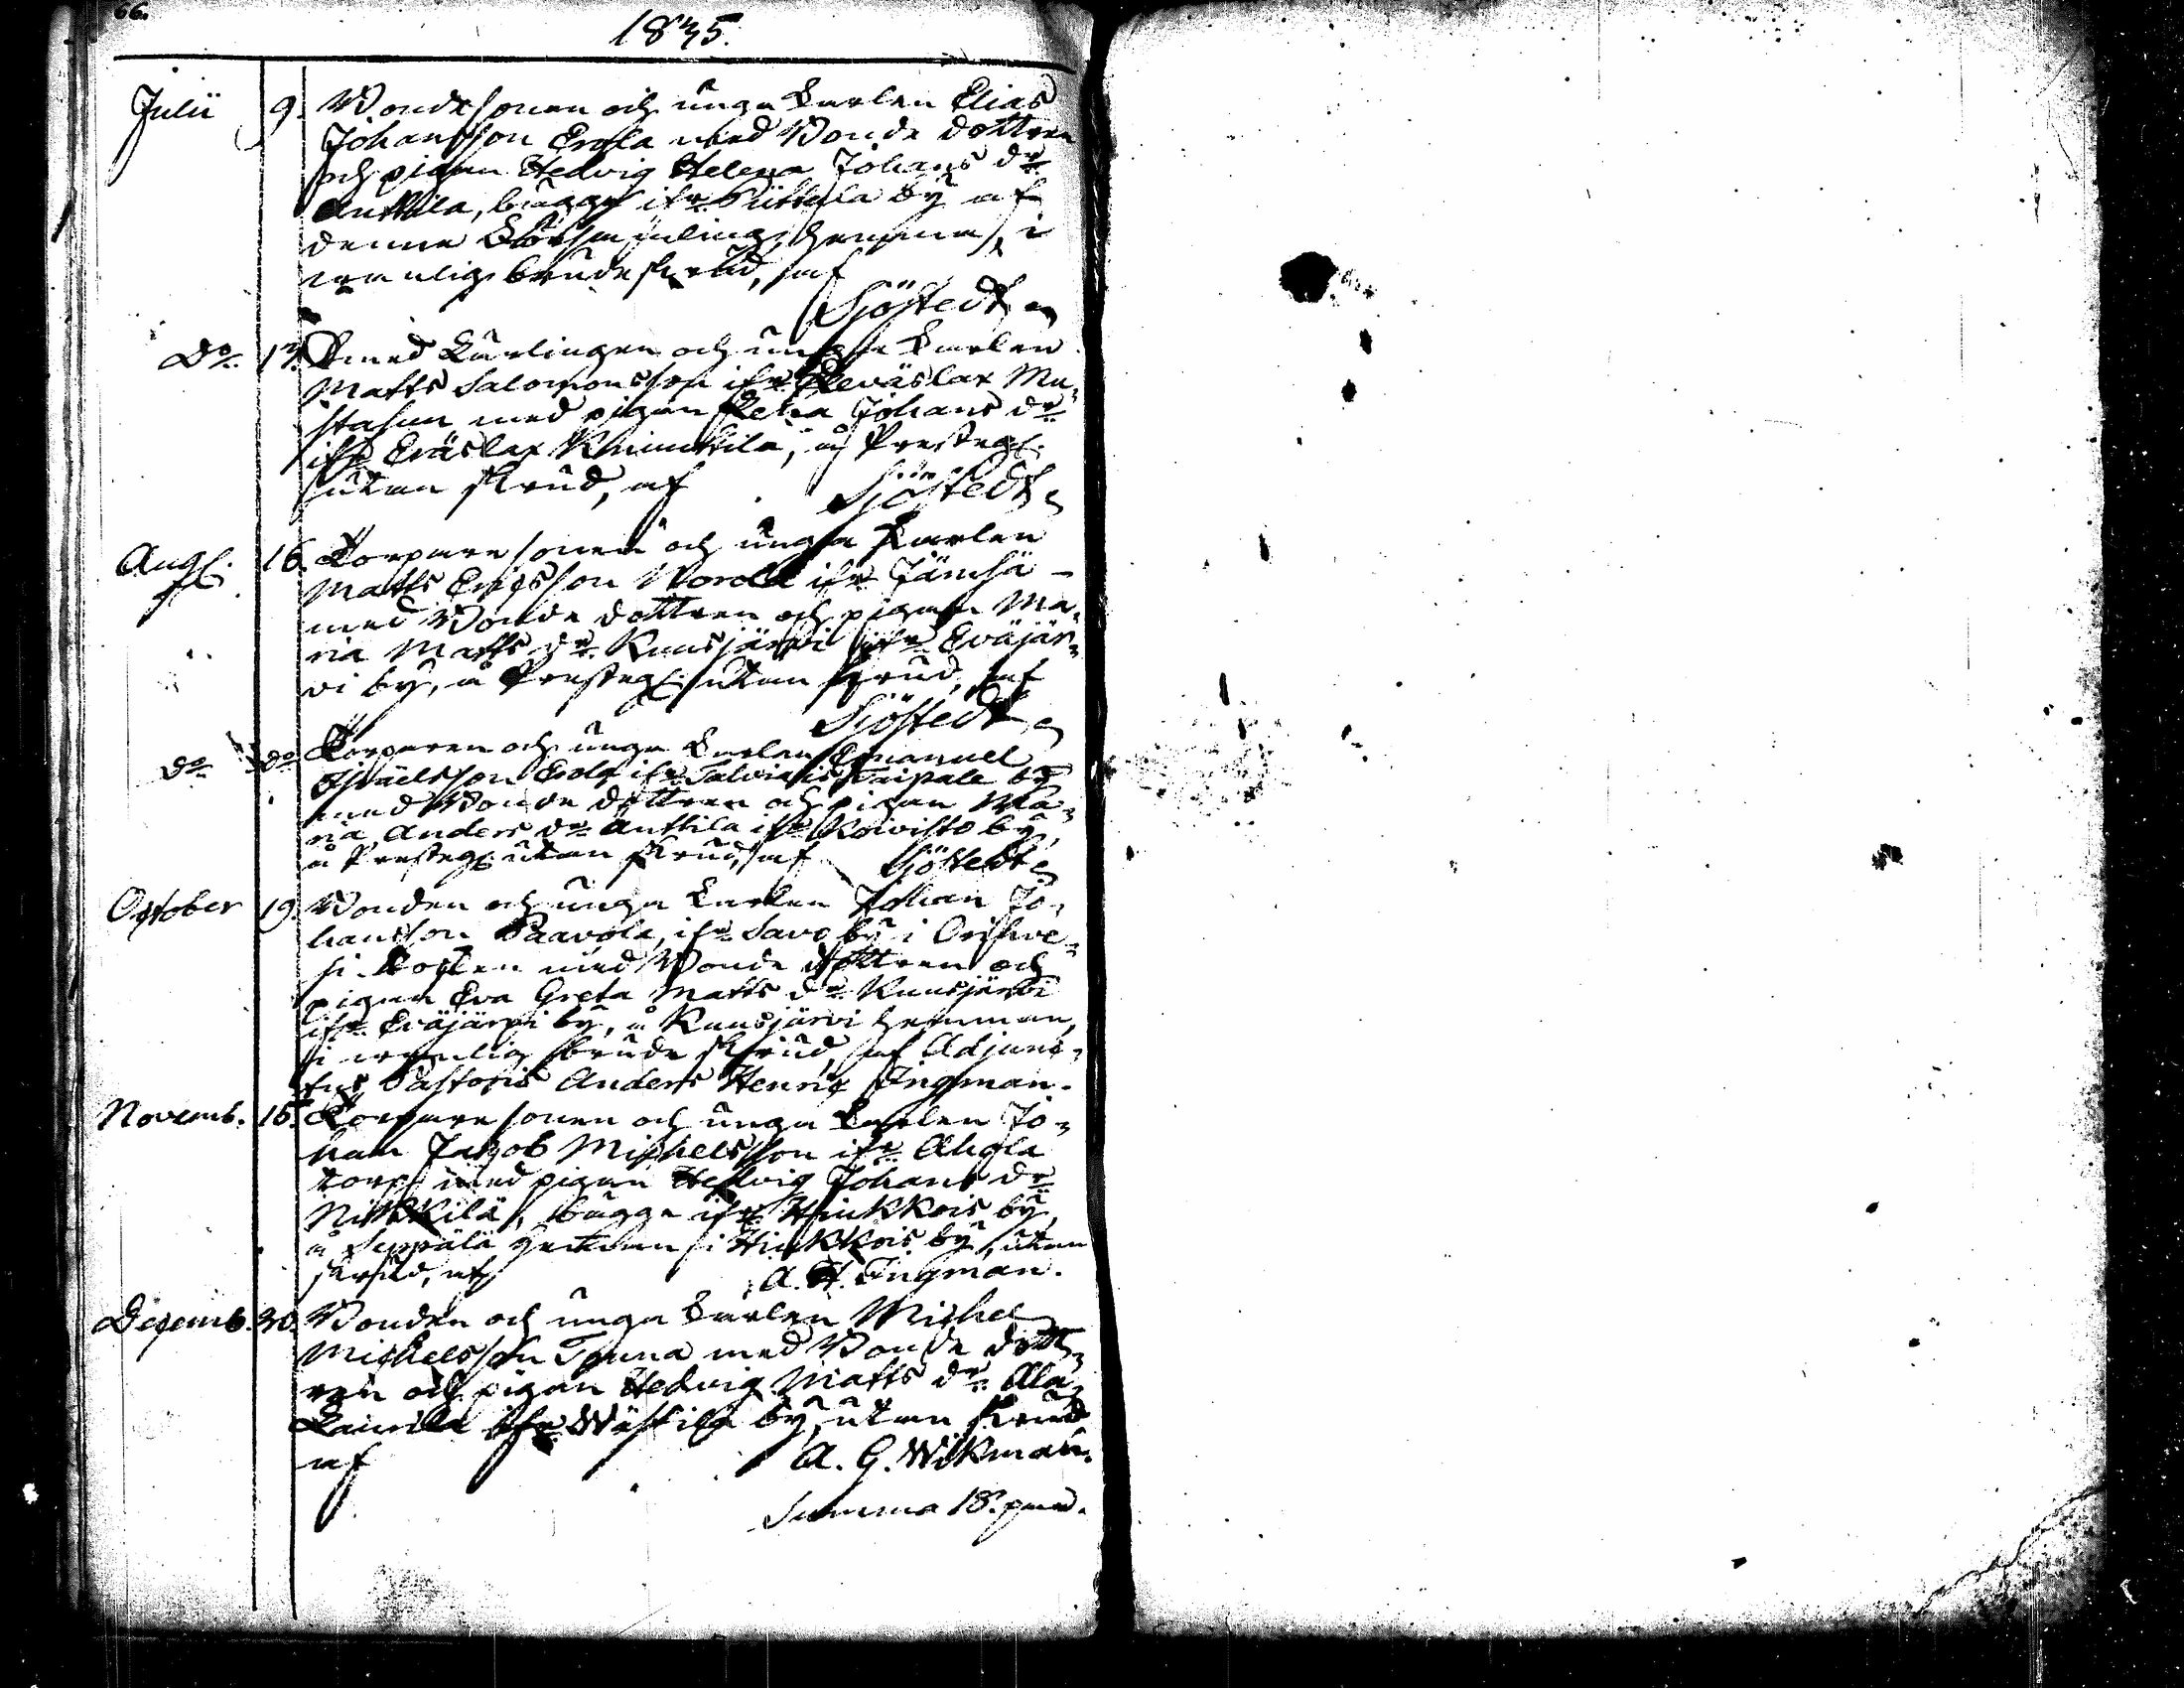 66.
1835.
Julii 9. Bondesonen och unga Karlen Elias
Johansson Erola med Bonde dottren
och pigan Hedvig Helena Johans dr
Anttila, bägge ifr. Puttola by af
denna Församling, hemma, i
vanlig brudeskrud, af
Sjöstedt
Do 17. och unga Karlen
Matts Salomonsson ifr. Eväslax Mu-
stasuu med pigan Lena Johans dr
ifr Eväslax Knuuttila, å Presteg.
utan skrud, af Sjöstedt
Aug. 16. Torparesonen och unga Karlen
Matts Ericsson Norola ifr Jämsä
med Bonde dottren och pigan Ma-
ria Matts dr Kuusjärvi ifr Eväjär-
vi by, å Presteg. utan skrud, af
Sjöstedt
do do Torparen och unga Karlen Emanuel
Israelsson Erola ifr Talviais Taipale by
med Bonde dottren och pigan Ma-
ria Anders dr Anttila ifr Koivisto by,
å Presteg. utan skrud, af Sjöstedt
October 19. Bonden och unga Karlen Johan Jo-
hansson Paavola, ifr Savo by i Orihve-
si Socken med Bonde dottren och
pigan Eva Greta Matts dr Kuusjärvi
ifr Eväjärvi by, å Kuusjärvi hemman,
i vanlig brude skrud, af Adjunc-
tus Pastoris Anders Henric Ingman.
Novemb. 15. Torparesonen och unga Karlen Jo-
han Jakob Michelsson ifr Ahola
torp med pigan Hedvig Johans dr
Nikkilä, bägge ifr Hinkkois by,
å Seppälä hemman i Hinkkois by, utan
skrud, af A. H. Ingman.
Decemb. 30. Bonden och unga Karlen Michel
Michelsson Touna med Bonde dott-
ren och pigan Hedvig Matts dr Ala
Laurila ifr Wästilä by, utan skrud
af A. G. Wikman.
Summa 18. par.